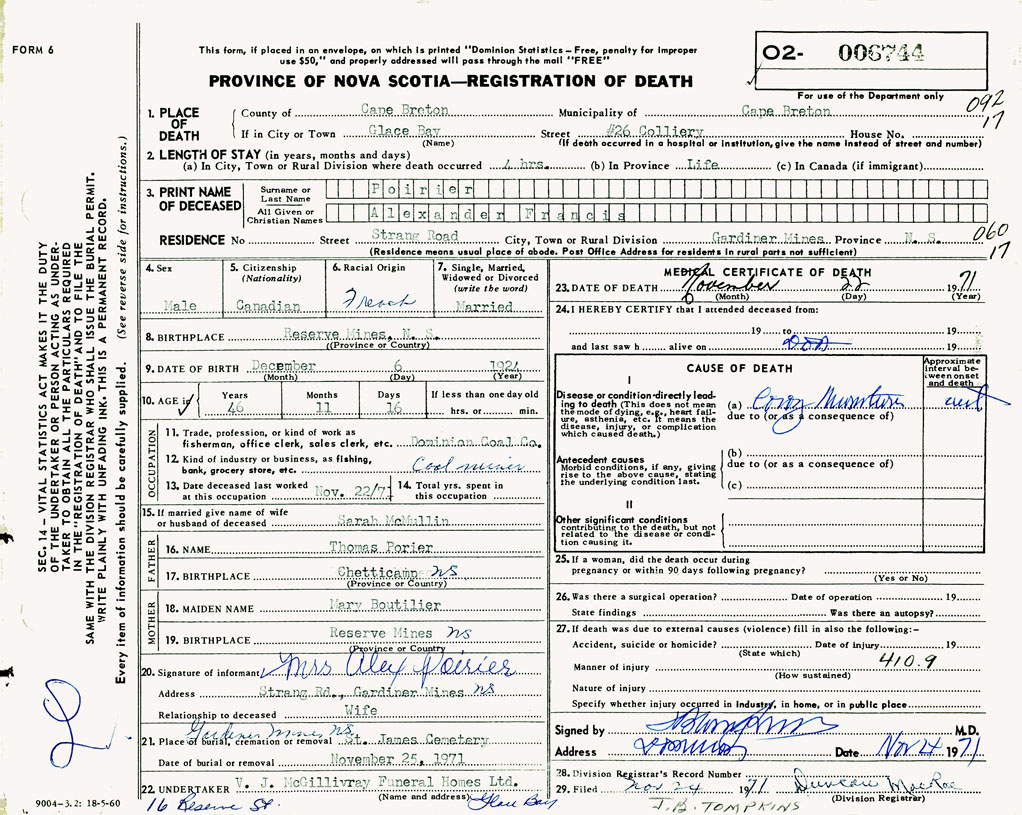 FORM 6
This form, if placed in an envelope, on which is printed "Dominion Statistics – Free, penalty for improper
use $50," and properly addressed will pass through the mail "FREE"
PROVINCE OF NOVA SCOTIA—REGISTRATION OF DEATH
O2- 006744
For use of the Department only
092
17
1. PLACE OF DEATH
County of Cape Breton Municipality of Cape Breton
If in City or Town Glace Bay Street #26 Colliery House No.
(Name) (If death occurred in a hospital or institution, give the name instead of street and number)
2. LENGTH OF STAY (in years, months and days)
(a) In City, Town or Rural Division where death occurred 4 hrs. (b) In Province Life (c) In Canada (if immigrant)
3. PRINT NAME OF DECEASED
Surname or Last Name Poirier
All Given or Christian Names Alexander Francis
060
17
RESIDENCE No Street Strang Road City, Town or Rural Division Gardiner Mines Province N. S.
(Residence means usual place of abode. Post Office Address for residents in rural parts not sufficient)
4. Sex
Male
5. Citizenship
(Nationality)
Canadian
6. Racial Origin
French
7. Single, Married, Widowed or Divorced
(write the word)
Married
8. BIRTHPLACE Reserve Mines, N. S.
((Province or Country)
9. DATE OF BIRTH December 6 1924
(Month) (Day) (Year)
10. AGE if
Years Months Days If less than one day old
46 11 16 hrs. or min.
OCCUPATION
11. Trade, profession, or kind of work as
fisherman, office clerk, sales clerk, etc. Dominion Coal Co.
12. Kind of industry or business, as fishing,
bank, grocery store, etc. Coal miner
13. Date deceased last worked at this occupation Nov. 22/71
14. Total yrs. spent in this occupation
15. If married give name of wife
or husband of deceased Sarah McMullin
FATHER
16. NAME Thomas Porier
17. BIRTHPLACE Chetticamp NS
(Province or Country)
MOTHER
18. MAIDEN NAME Mary Boutilier
19. BIRTHPLACE Reserve Mines NS
(Province or Country)
20. Signature of informant Mrs Alex Poirier
Address Strang Rd., Gardiner Mines NS
Relationship to deceased Wife
Gardiner Mines NS
21. Place of burial, cremation or removal St. James Cemetery
Date of burial or removal November 25, 1971
22. UNDERTAKER V. J. McGillivray Funeral Homes Ltd.
(Name and address)
16 Reserve St. Glace Bay
MEDICAL CERTIFICATE OF DEATH
23. DATE OF DEATH November 22 1971
(Month) (Day) (Year)
24. I HEREBY CERTIFY that I attended deceased from:
19 to 19
and last saw h alive on DOA 19
CAUSE OF DEATH
Approximate interval between onset and death
I
Disease or condition directly leading to death (This does not mean the mode of dying, e.g., heart failure, asthenia, etc. It means the disease, injury, or complication which caused death.)
(a)
due to (or as a consequence of)
Antecedent causes
Morbid conditions, if any, giving rise to the above cause, stating the underlying condition last.
(b)
due to (or as a consequence of)
(c)
II
Other significant conditions
contributing to the death, but not related to the disease or condition causing it.
25. If a woman, did the death occur during
pregnancy or within 90 days following pregnancy?
(Yes or No)
26. Was there a surgical operation? Date of operation 19
State findings Was there an autopsy?
27. If death was due to external causes (violence) fill in also the following:–
Accident, suicide or homicide? Date of injury 19
(State which)
410.9
Manner of injury
(How sustained)
Nature of injury
Specify whether injury occurred in industry, in home, or in public place
Signed by M.D.
Address Date Nov 24 1971
28. Division Registrar's Record Number
29. Filed Nov 24 1971 Duncan MacRae
(Division Registrar)
J.B. TOMPKINS
SEC. 14 – VITAL STATISTICS ACT MAKES IT THE DUTY
OF THE UNDERTAKER OR PERSON ACTING AS UNDER-
TAKER TO OBTAIN ALL THE PARTICULARS REQUIRED
IN THE "REGISTRATION OF DEATH" AND TO FILE THE
SAME WITH THE DIVISION REGISTRAR WHO SHALL ISSUE THE BURIAL PERMIT.
WRITE PLAINLY WITH UNFADING INK. THIS IS A PERMANENT RECORD.
Every item of information should be carefully supplied. (See reverse side for instructions.)
9004-3.2: 18-5-60